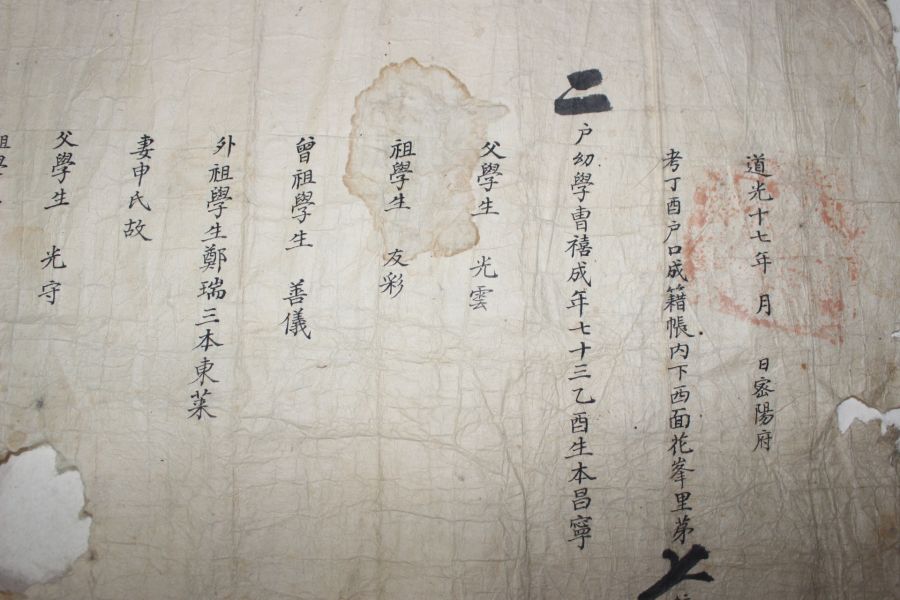 道光十七年 月 日密陽府
考丁酉户口成籍帳内下西面花峯里苐
二
户幼學曺禧成年七十三乙酉生本昌寧
父學生 光雲
祖學生 友彩
曾祖學生 善儀
外祖學生鄭瑞三本東萊
妻申氏故
父學生 光守